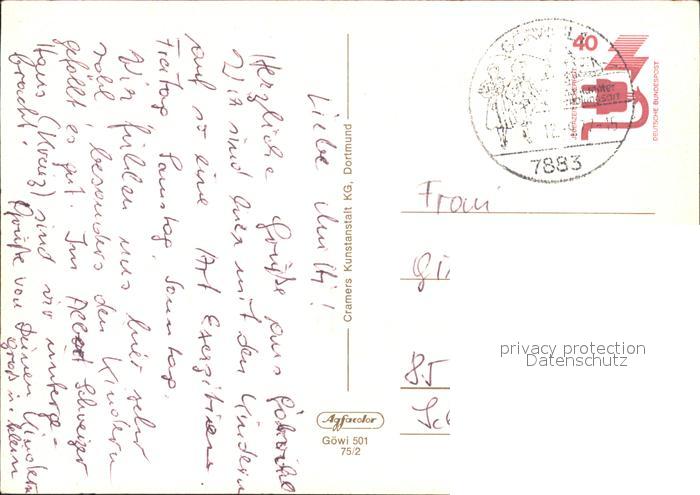 Liebe Mutti!
Herzliche Grüße aus Görwihl
Wir sind hier mit den Kindern
auf so eine Art Exerzitien.
Freitag, Samstag, Sonntag.
Wir fühlen uns hier sehr
wohl besonders den Kindern
gefällt es gut. Im Albert Schweizer
Haus (Kreuz) sind wir unterge-
bracht.
Grüße von Deinen Kindern
groß u. klein
Cramers Kunstanstalt KG, Dortmund
Agfacolor
Göwi 501
75/2
GÖRWIHL
7883
40
DEUTSCHE BUNDESPOST
Frau
Gi
85
Sc
privacy protection
Datenschutz